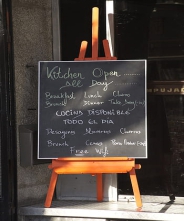 Kitchen Open
All Day
Breakfast Lunch
Brunch Dinner Take
COCINA DISPONIBLE
TODO EL DIA
Desayuno
Brunch Cenas
Free Wifi